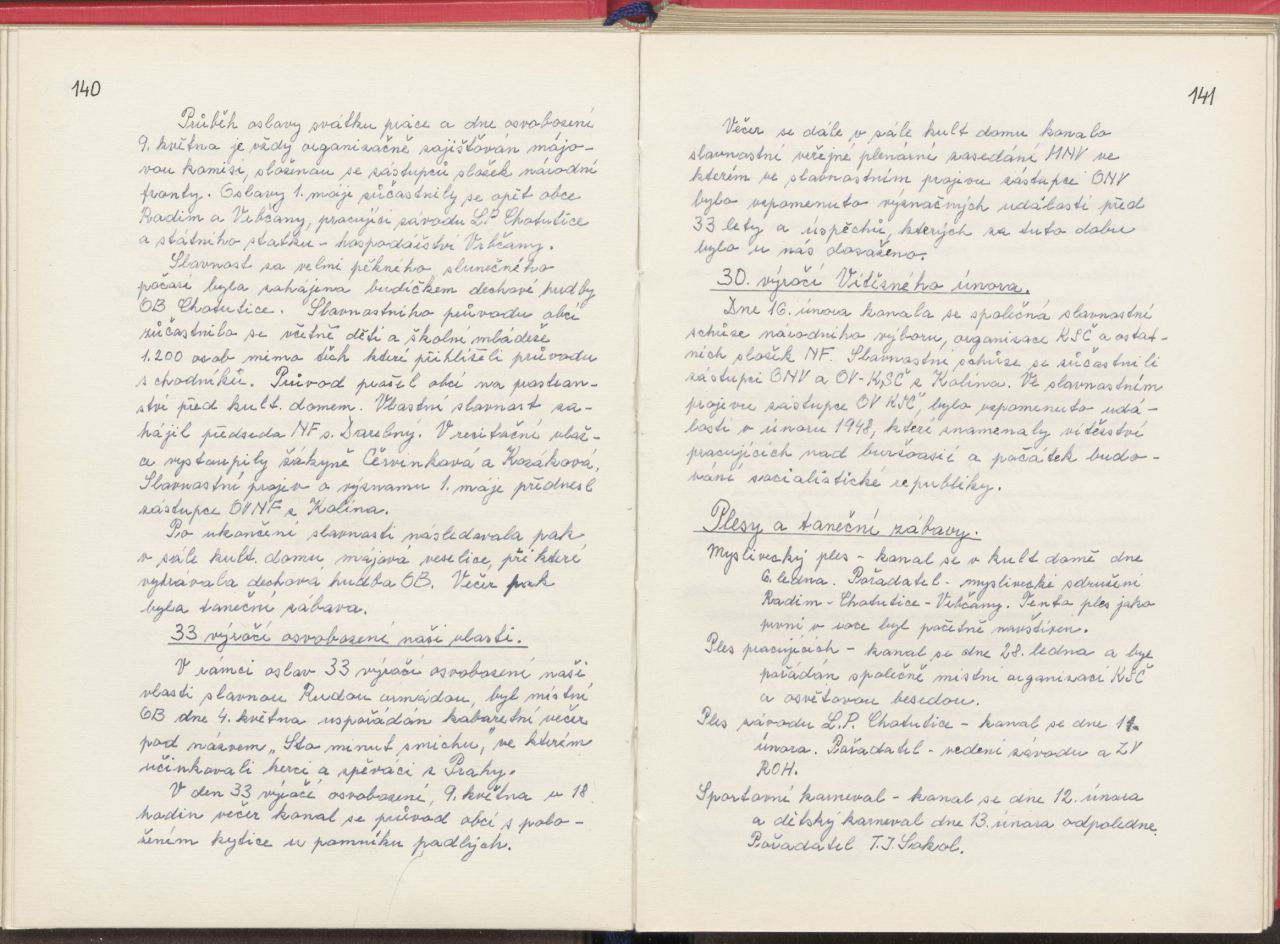 140
Průběh oslavy svátku práce a dne osvobození
9. května je vždy organizačně zajišťován májo-
vou komisí, složenou se zástupců složek národní
fronty. Oslavy 1. máje zúčastnily se opět obce
Radim a Vrbčany, pracující závodu L.P. Chotutice
a státního statku - hospodářství Vrbčany.
Slavnost za velmi pěkného, slunečného
počasí byla zahájena budíčkem dechové hudby
OB Chotutice. Slavnostního průvodu obcí
zúčastnilo se včetně dětí a školní mládeže
1.200 osob mimo těch kteří přihlíželi průvodu
s chodníků. Průvod prošel obcí na prostran-
ství před kult. domem. Vlastní slavnost za-
hájil předseda NF s. Darebný. V recitační vlož-
ce vystoupily žákyně Červinková a Kozáková,
Slavnostní projev o významu 1. máje přednesl
zástupce OVNF z Kolína.
Po ukončení slavnosti následovala pak
v sále kult. domu májová veselice, při které
vyhrávala dechová hudba OB. Večer pak
byla taneční zábava.
33 výročí osvobození naší vlasti.
V rámci oslav 33 výročí osvobození naší
vlasti slavnou Rudou armádou, byl místní
OB dne 4. května uspořádán kabaretní večer
pod názvem „Sto minut smíchu," ve kterém
účinkovali herci a zpěváci z Prahy.
V den 33 výročí osvobození, 9. května v 18
hodin večer konal se průvod obcí s polo-
žením kytice u pomníku padlých.
141
Večer se dále v sále kult domu konalo
slavnostní veřejné plenární zasedání MNV ve
kterém ve slavnostním projevu zástupce ONV
bylo vzpomenuto význačných událostí před
33 lety a úspěchů, kterých za tuto dobu
bylo u nás dosaženo.
30. výročí Vítězného února.
Dne 16. února konala se společná slavnostní
schůze národního výboru, organizace KSČ a ostat-
ních složek NF. Slavnostní schůze se zúčastnili
zástupci ONV a OV-KSČ z Kolína. Ve slavnostním
projevu zástupce OV KSČ, bylo vzpomenuto udá-
lostí v únoru 1948, které znamenaly vítězství
pracujících nad buržoasií a počátek budo-
vání socialistické republiky.
Plesy a taneční zábavy.
Myslivecký ples - konal se v kult domě dne
6. ledna. Pořadatel - myslivecké sdružení
Radim - Chotutice - Vrbčany. Tento ples jako
první v roce byl početně navštíven.
Ples pracujících - konal se dne 28. ledna a byl
pořádán společně místní organizací KSČ
a osvětovou besedou.
Ples závodu L.P. Chotutice - konal se dne 11.
února. Pořadatel - vedení závodu a ZV
ROH.
Sportovní karneval - konal se dne 12. února
a dětský karneval dne 13. února odpoledne.
Pořadatel T.J. Sokol.